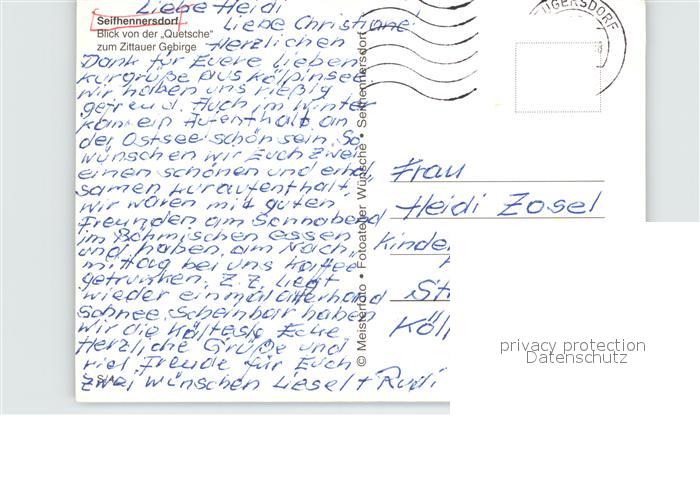 Liebe Heidi
Liebe Christiane
Seifhennersdorf
Blick von der „Quetsche"
zum Zittauer Gebirge
Herzlichen
Dank für Euere lieben
Kurgrüße aus Kölpinsee.
Wir haben uns rießig
gefreud. Auch im Winter
kann ein Aufenthalt an
der Ostsee schön sein. So
wünschen wir Euch zwei
einen schönen und erhol-
samen Kuraufenthalt.
Wir waren mit guten
Freunden am Sonnabend
im Böhmischen essen
und haben am Nach-
mittag bei uns Kaffee
getrunken. Z. Z. liegt
wieder einmal allerhand
Schnee. Scheinbar haben
wir die kälteste Ecke
Herzliche Grüße und
viel Freude für Euch
zwei wünschen Liesel + Rudi
© Meisterfoto • Fotoatelier Wünsche • Seifhennersdorf
UGERSDORF
Frau
Heidi Zosel
Kinde
St
Köl
privacy protection
Datenschutz